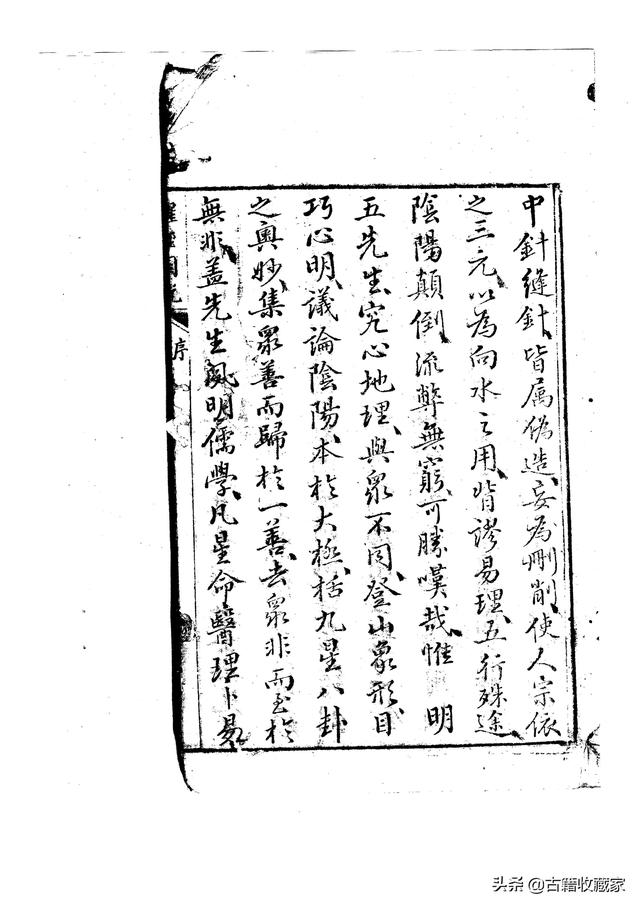 中針縫針皆属偽造妄為刪削使人宗依
之三元以為向水之用皆謬易理五行殊途
陰陽顛倒流弊無窮可勝嘆哉惟 明
五先生究心地理與眾不同登山象形目
巧心明議論陰陽本於大極括九星八卦
之奧妙集眾善而歸於一善去眾非而至於
無非蓋先生夙明儒學凡星命醫理卜易
羅經圖說
序
头条 @古籍收藏家